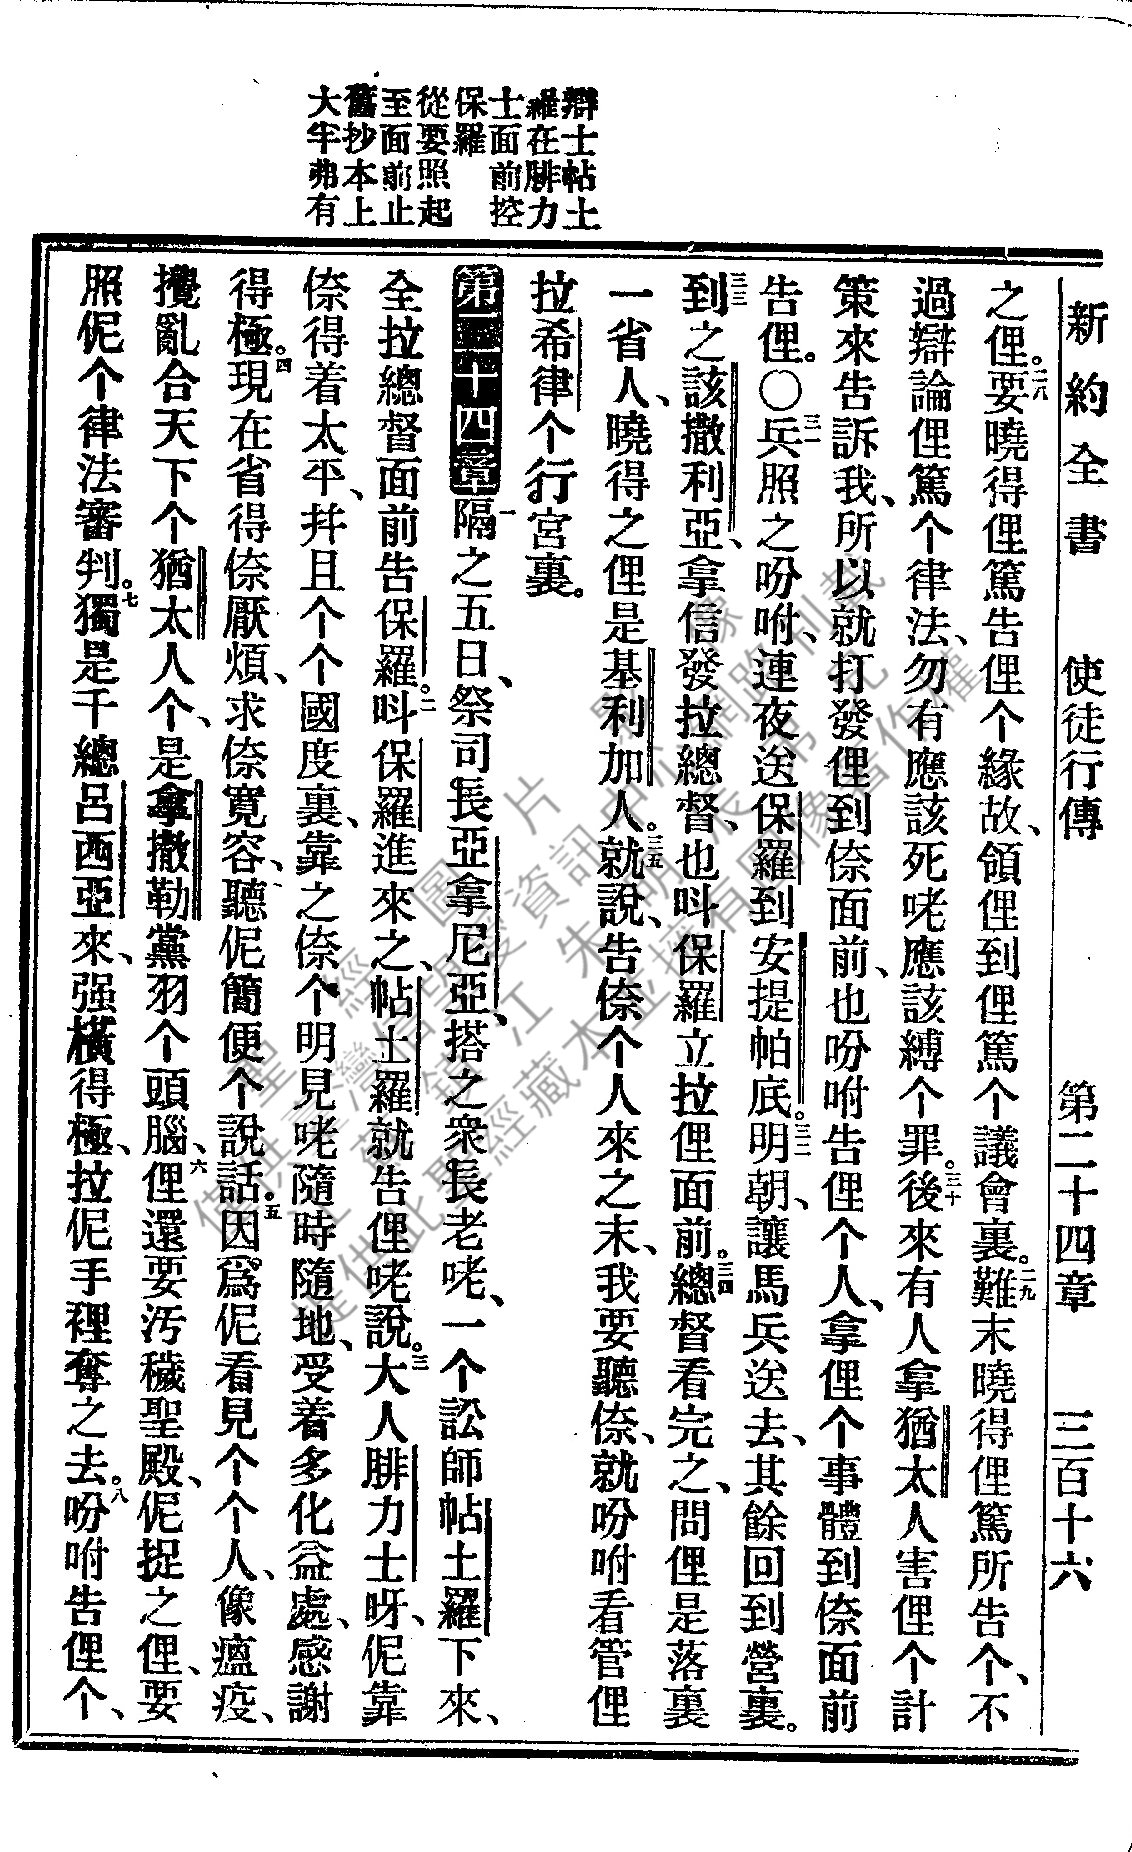 新約全書　使徒行傳　第二十四章　三百十六
之俚。二八要曉得俚篤告俚个緣故、領俚到俚篤个議會裏。二九難末曉得俚篤所告个、不
過辯論俚篤个律法、勿有應該死咾應該縛个罪。三十後來有人拿猶太人害俚个計
策來告訴我、所以就打發俚到倷面前、也吩咐告俚个人、拿俚个事體到倷面前
告俚。〇三一兵照之吩咐、連夜送保羅到安提帕底。三二明朝、讓馬兵送去、其餘回到營裏。
三三到之該撒利亞、拿信發拉總督、也呌保羅立拉俚面前。三四總督看完之、問俚是落裏
一省人、曉得之俚是基利加人。三五就說、告倷个人來之末、我要聽倷、就吩咐看管俚
拉希律个行宮裏。
第二十四章 一隔之五日、祭司長亞拿尼亞、搭之衆長老咾、一个訟師帖土羅下來、
全拉總督面前告保羅。二呌保羅進來之、帖土羅就告俚咾說。三大人腓力士呀、伲靠
倷得着太平、幷且个个國度裏、靠之倷个明見咾隨時隨地、受着多化益處、感謝
得極。四現在省得倷厭煩、求倷寬容、聽伲簡便个說話。五因爲伲看見个个人、像瘟疫、
攪亂合天下个猶太人个、是拿撒勒黨羽个頭腦、六俚還要汚穢聖殿、伲捉之俚、要
照伲个律法審判。七獨是千總呂西亞來、强橫得極、拉伲手裡奪之去。八吩咐告俚个、
辯士帖土
羅在腓力
士面前控
保羅
從要照起
至面前止
舊抄本上
大半弗有
僅供臺灣信望愛資訊中心網路刊載